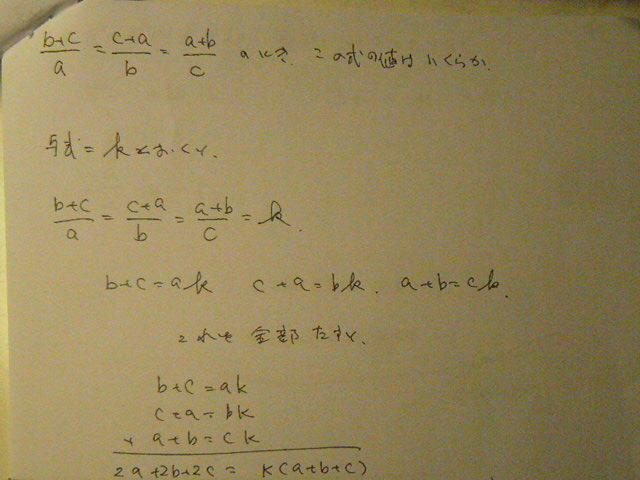 b+c/a = c+a/b = a+b/c のとき、この式の値はいくらか。
与式 = k とおくと、
b+c/a = c+a/b = a+b/c = k
b+c=ak c+a=bk. a+b=ck.
これを全部たすと、
b+c=ak
c+a=bk
+ a+b=ck
2a+2b+2c = k(a+b+c)